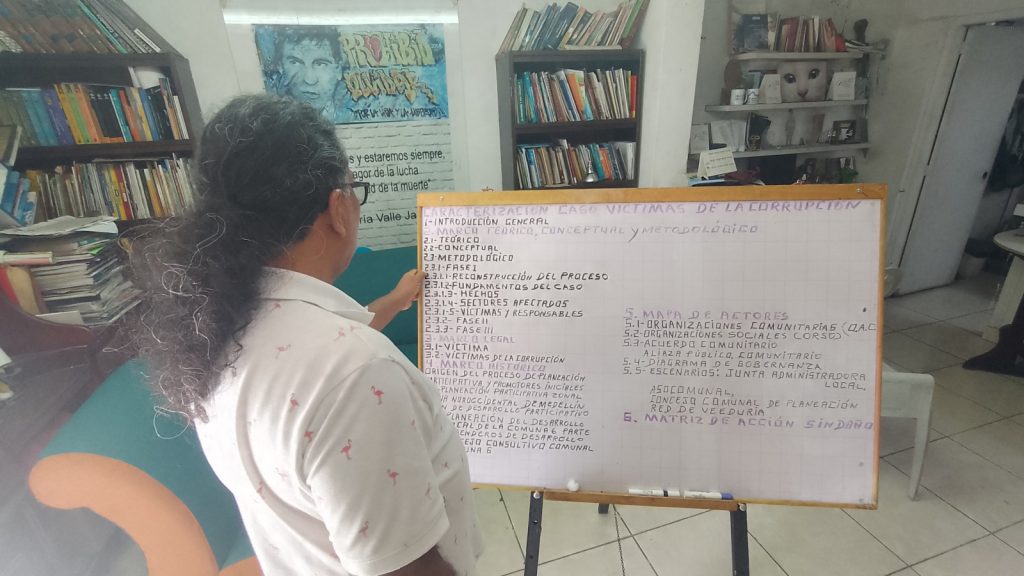 PROHIBIDO
OLVIDAR
POR LA VIDA Y LA
s y estaremos siempre,
agor de la lucha
d de la muerte"
ria Valle Ja
CARACTERIZACIÓN CASO VICTIMAS DE LA CORRUPCIÓN
1-INTRODUCCIÓN GENERAL
2-MARCO TEÓRICO, CONCEPTUAL Y METODOLÓGICO
2.1-TEÓRICO
2.2-CONCEPTUAL
2.3-METODOLÓGICO
2.3.1-FASE I
2.3.1.1-RECONSTRUCCIÓN DEL PROCESO
2.3.1.2-FUNDAMENTOS DEL CASO
2.3.1.3-HECHOS
2.3.1.4-SECTORES AFECTADOS
2.3.1.5-VICTIMAS Y RESPONSABLES
2.3.2-FASE II
2.3.3-FASE III
3-MARCO LEGAL
3.1-VICTIMA
3.2-VICTIMAS DE LA CORRUPCIÓN
4.MARCO HISTÓRICO
ORIGEN DEL PROCESO DE PLANEACIÓN
PARTICIPATIVA Y PROMOTORES INICIALES
PLANEACIÓN PARTICIPATIVA ZONAL
NOROCCIDENTAL DE MEDELLIN
DE DESARROLLO PARTICIPATIVO
DEL DESARROLLO
CAL DE LA COMUNA 6 PARTE
ENDEROS DE DESARROLLO
EJO CONSULTIVO COMUNAL
UNA 6
5. MAPA DE ACTORES
5.1-ORGANIZACIONES COMUNITARIAS (O.A.C
5.2-ORGANIZACIONES SOCIALES (ORSO)
5.3-ACUERDO COMUNITARIO
ALIAZA PÚBLICO, COMUNITARIO
5.4-DIAGRAMA DE GOBERNANZA
5.5-ESCENARIOS: JUNTA ADMINISTRADORA
LOCAL,
ASOCOMUNAL,
CONCEJO COMUNAL DE PLANEACIÓN
RED DE VEEDURIA
6. MATRIZ DE ACCIÓN SINDARO